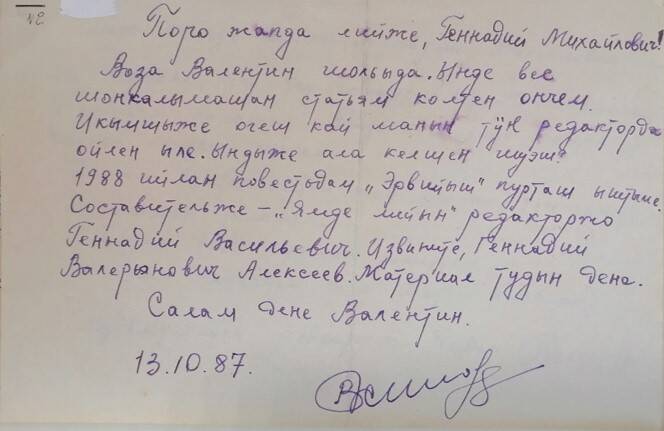 №2
Поро жапда лийже, Геннадий Михайлович!
Воза Валентин шольыда. Ынде вес
шонкалымашан статьям колтен ончем.
Икымшыже огеш кай манын тӱҥ редакторда
ойлен ыле. Ындыже ала келшен шуэш?
1988 ийлан повестьдам „Эрвийыш" пурташ ыштыне.
Составительже – „Ямде лийын" редакторжо
Геннадий Васильевич. Извините, Геннадий
Валерьянович Алексеев. Материал тудын дене.
Салам дене Валентин.
13.10.87.